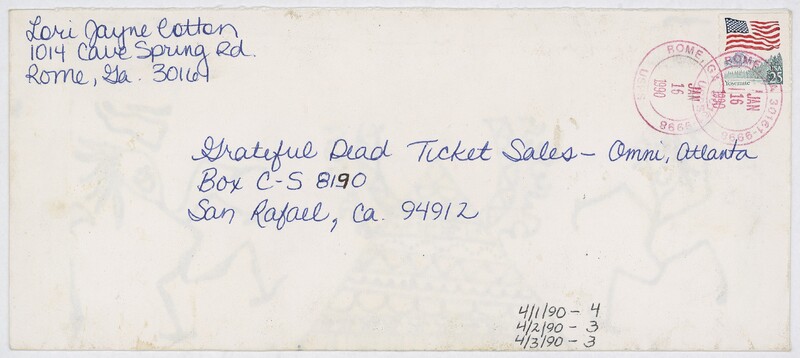 Lori Jayne Cotton
1014 Cave Spring Rd.
Rome, Ga. 30161
ROME, GA
JAN
16
1990
ROME, GA 30161-9998
JAN
16
1990
25
Grateful Dead Ticket Sales - Omni, Atlanta
Box C-S 8190
San Rafael, Ca. 94912
4/1/90 - 4
4/2/90 - 3
4/3/90 - 3